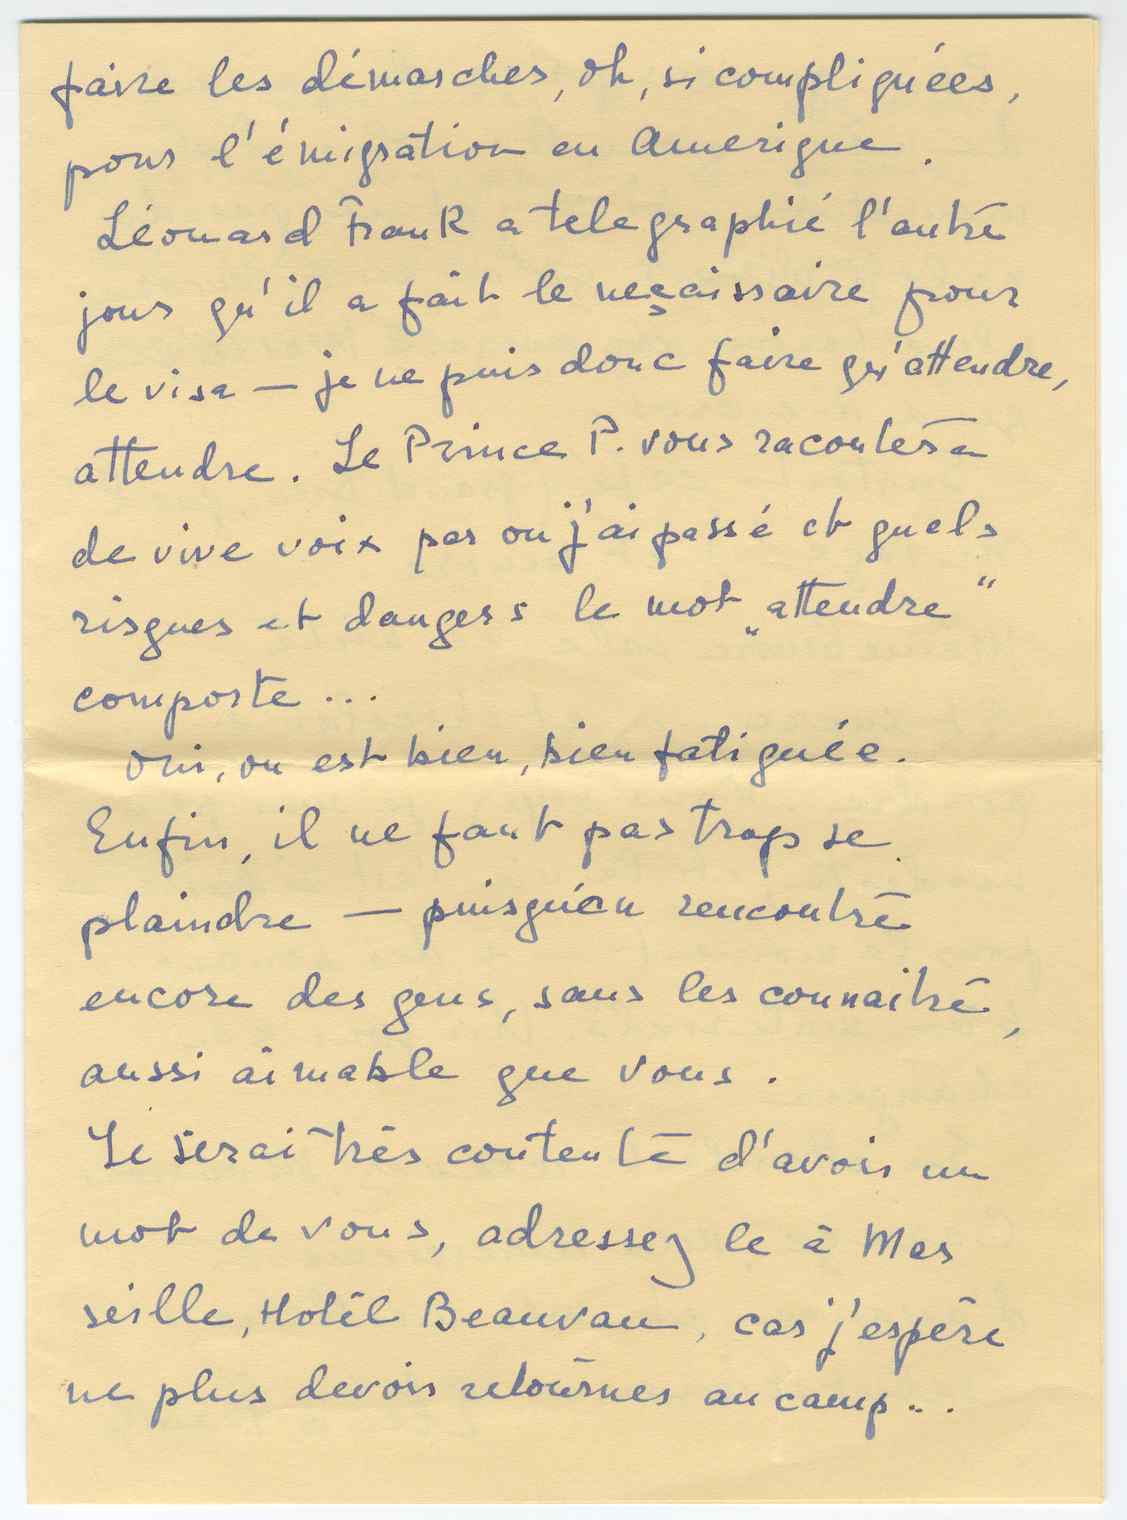 faire les démarches, oh, si compliquées,
pour l'émigration en Amerique.
Léonard Frank a telegraphié l'autre
jour qu'il a fait le neçaissaire pour
le visa — je ne puis donc faire qu'attendre,
attendre. Le Prince P. vous racontera
de vive voix par où j'ai passé et quels
risques et dangers le mot „attendre“
comporte...
Oui, on est bien, bien fatiguée.
Enfin, il ne faut pas trop se
plaindre — puisqu'on rencontre
encore des gens, sans les connaitre,
aussi aimable que vous.
Je serai très contente d'avoir un
mot de vous, adressez le à Mar
seille, Hotel Beauvau, car j'espère
ne plus devoir retourner au camp...